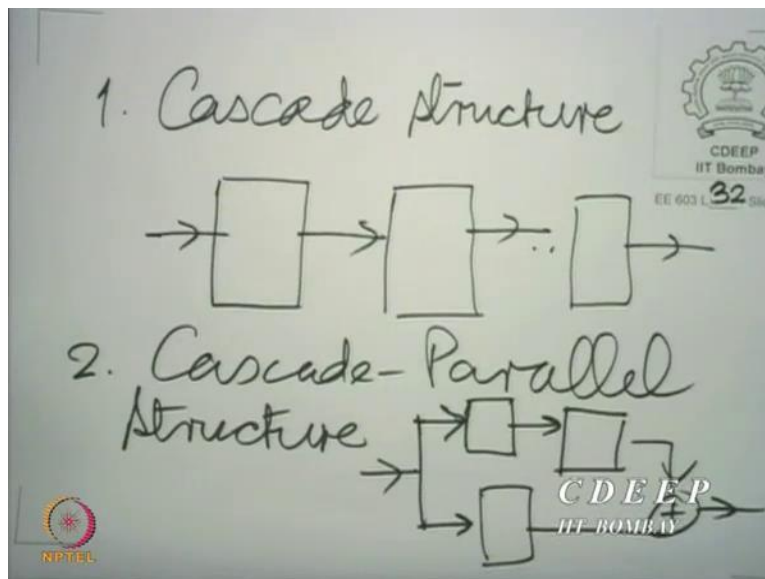 1. Cascade structure
CDEEP
IIT Bombay
EE 603 L 32
2. Cascade-Parallel
structure
+
CDEEP
IIT BOMBAY
NPTEL